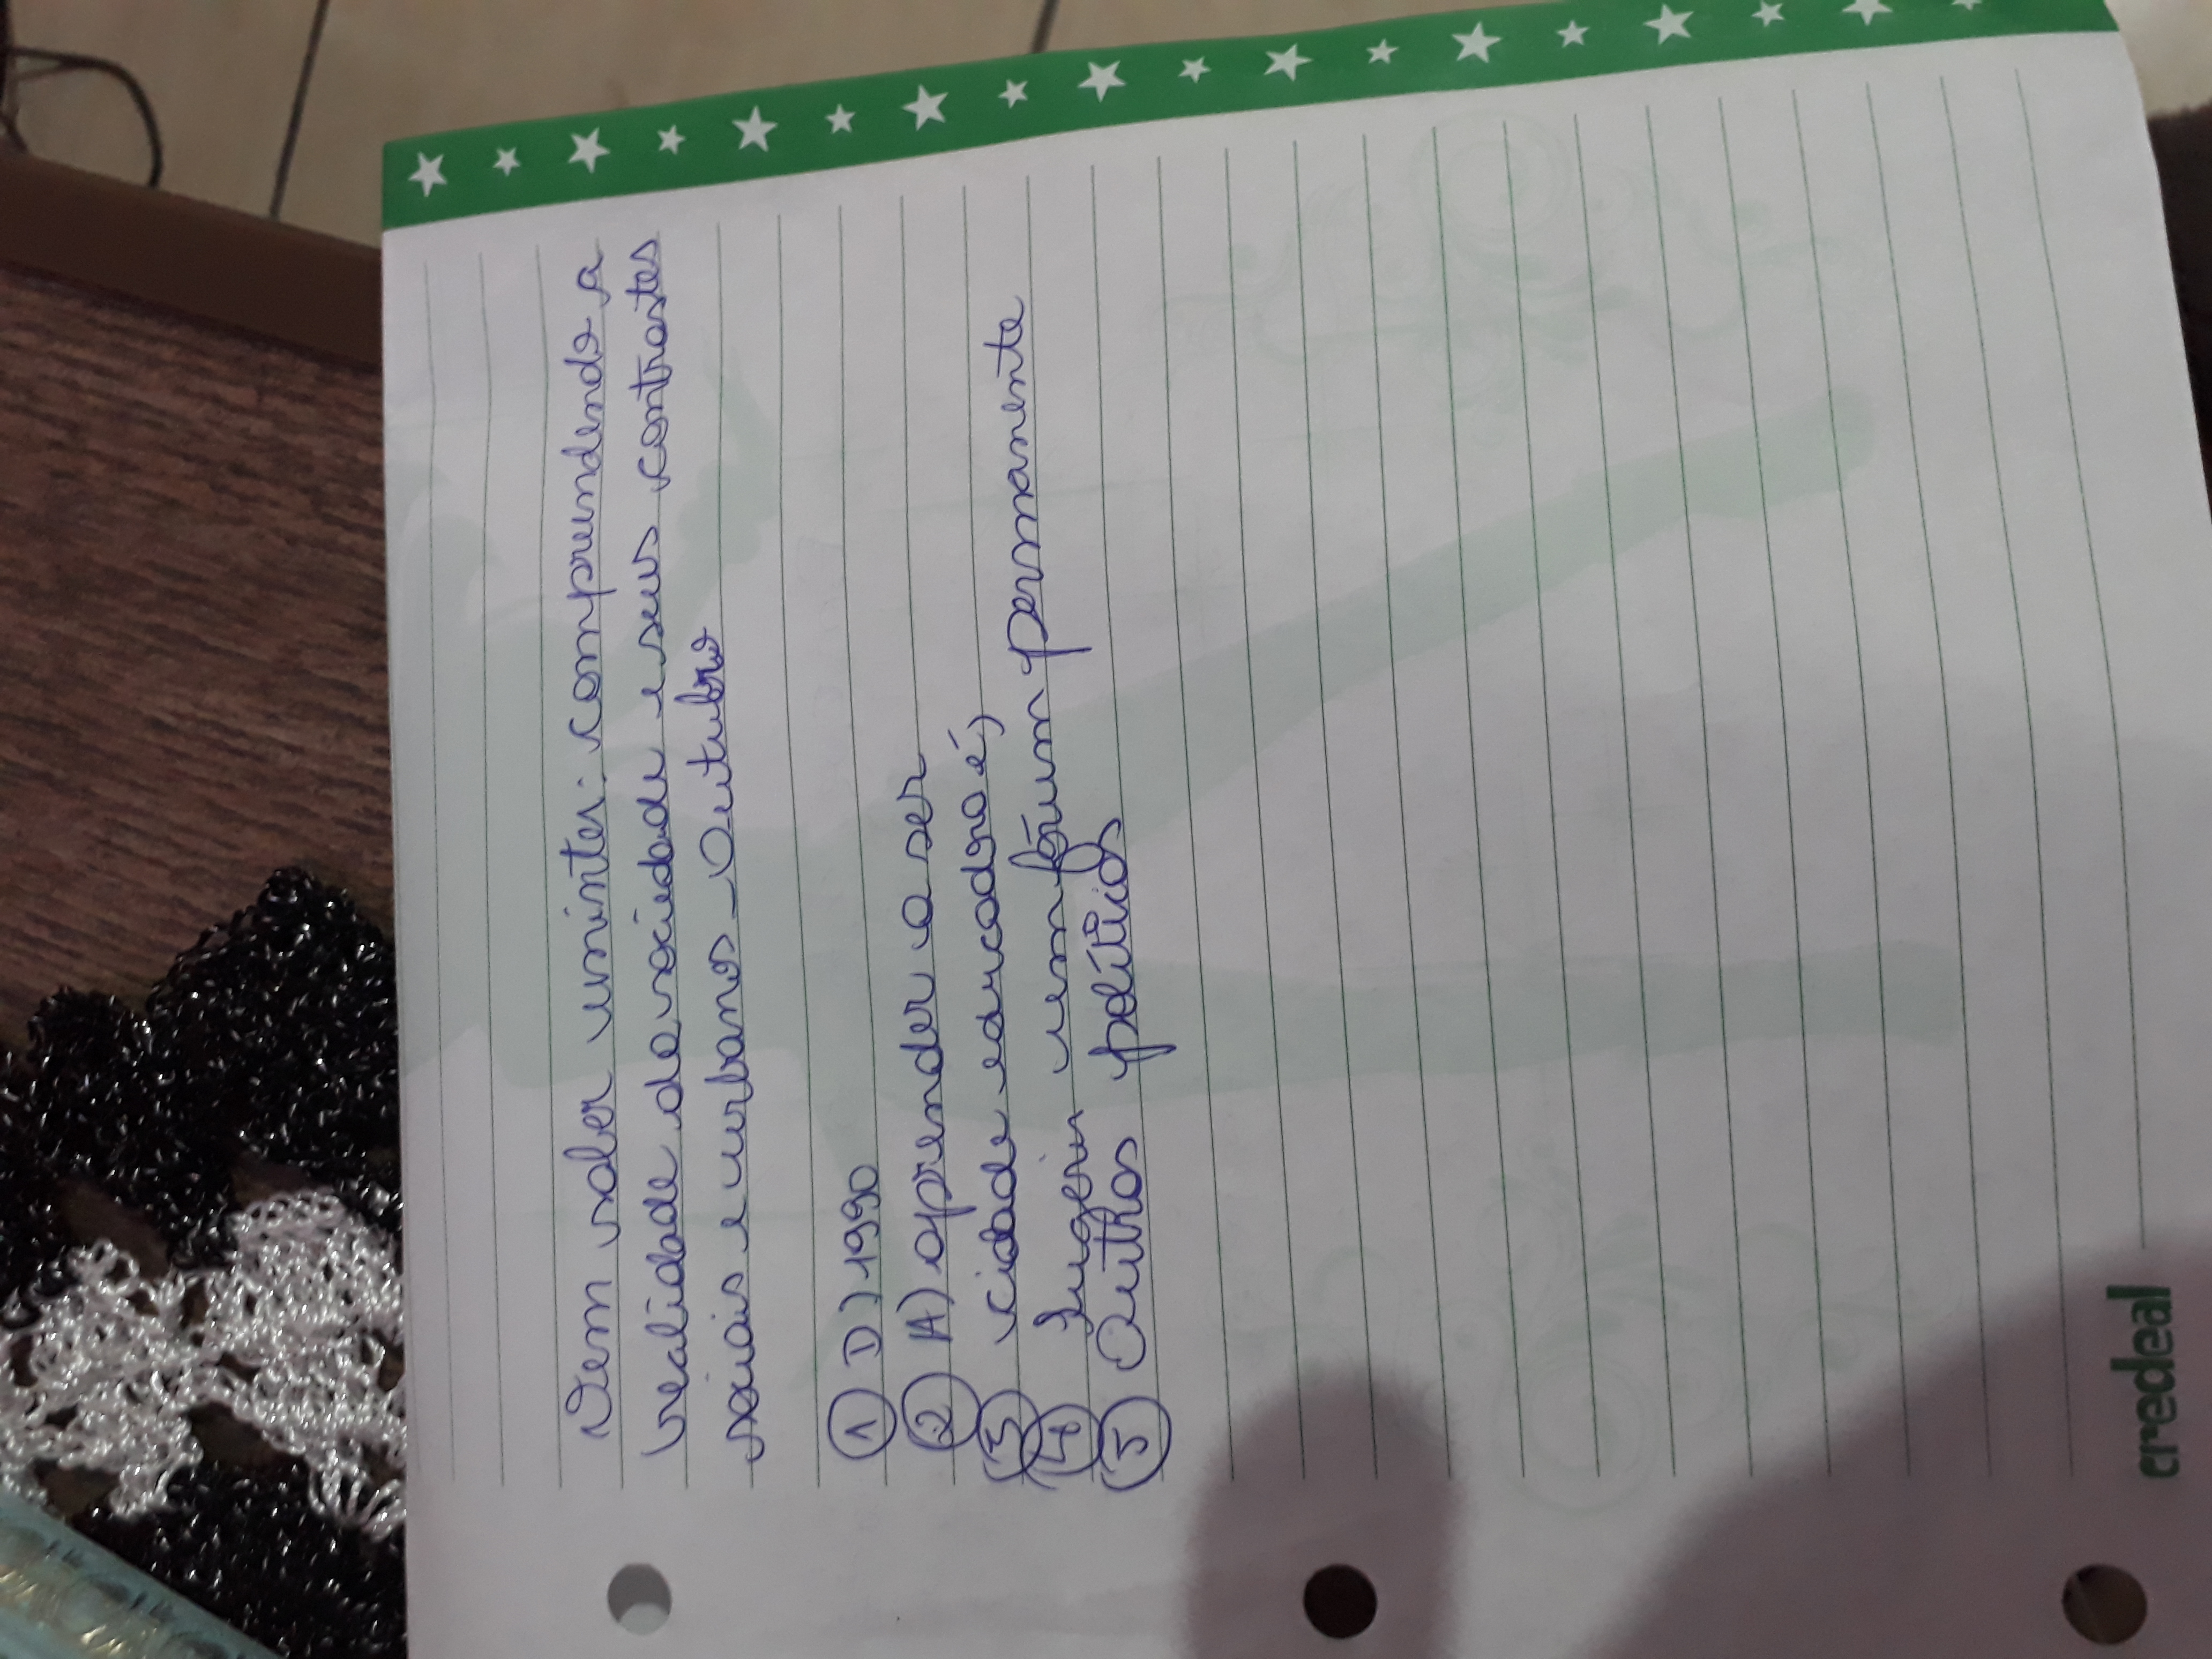 Vem saber uninter: compreendendo a
realidade da sociedade e seus contrastes
sociais e urbanos - Outubro
① D) 1990
② A) aprender a ser
③ cidade educadora é)
④ em fórum permanente
⑤ políticos
credeal